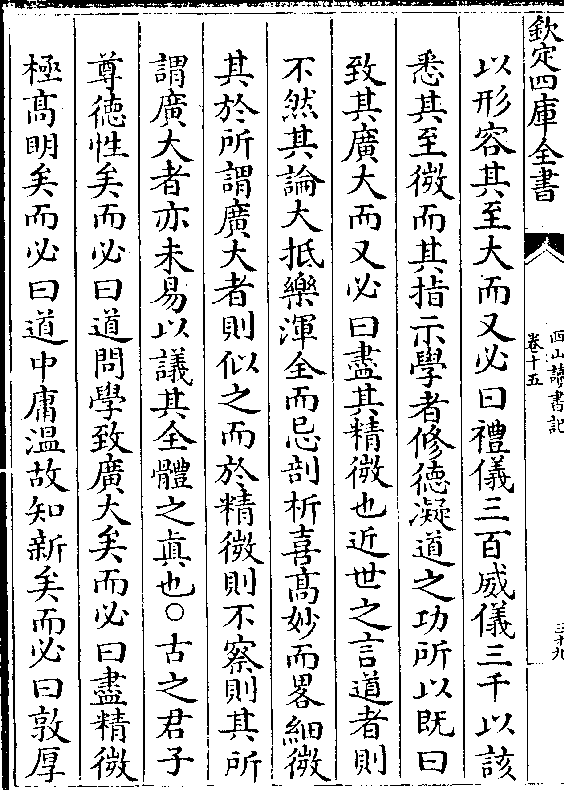 欽定四庫全書
西山讀書記
卷十五
三十九
以形容其至大而又必曰禮儀三百威儀三千以該
悉其至微而其指示學者修德凝道之功所以既曰
致其廣大而又必曰盡其精微也近世之言道者則
不然其論大抵樂渾全而忌剖析喜髙妙而畧細微
其於所謂廣大者則似之而於精微則不察則其所
謂廣大者亦未易以議其全體之真也○古之君子
尊德性矣而必曰道問學致廣大矣而必曰盡精微
極髙明矣而必曰道中庸溫故知新矣而必曰敦厚